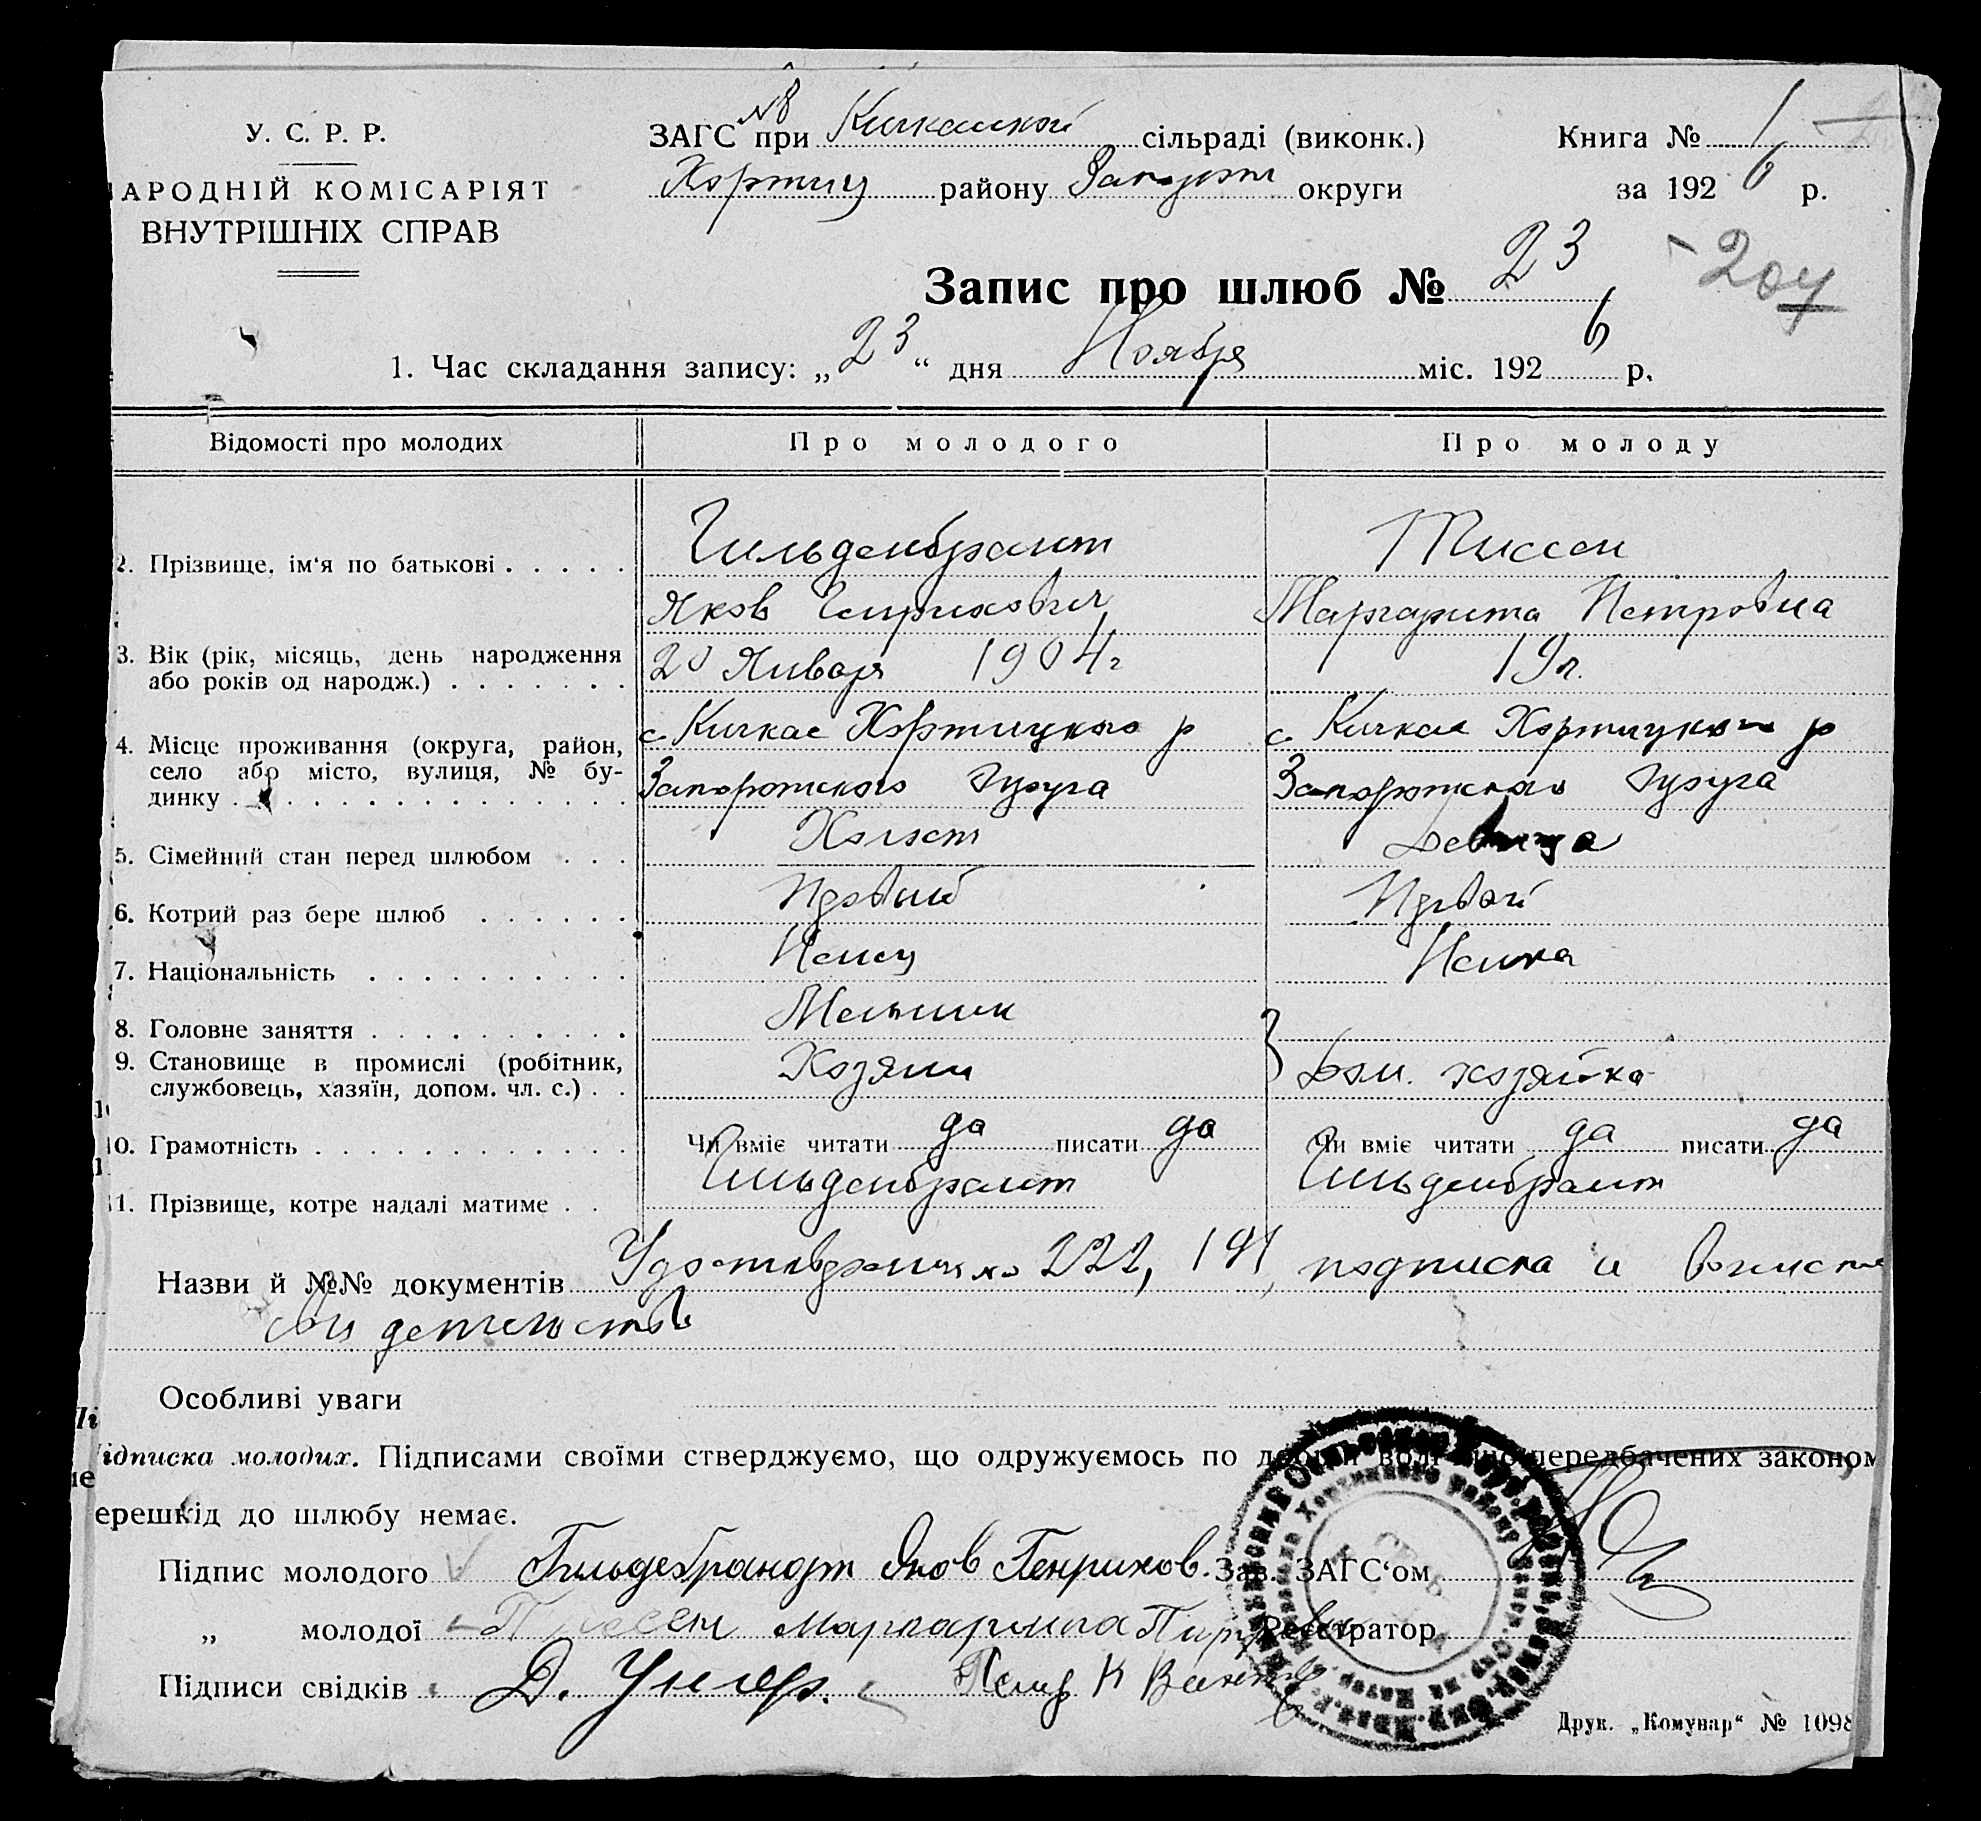 У. С. Р. Р.
АРОДНІЙ КОМІСАРІЯТ
ВНУТРІШНІХ СПРАВ
ЗАГС №8 при Кичкасской сільраді (виконк.)
Хортиц району Запорож округи
Книга № 1
за 1926 р.
Запис про шлюб № 23
204
1. Час складання запису: „23“ дня Ноября міс. 1926 р.
Відомості про молодих Про молодого Про молоду
2. Прізвище, ім'я по батькові Гильденбрант Тиссен
Яков Генрихович Маргарита Петровна
3. Вік (рік, місяць, день народження
або років од народж.) 20 Января 1904 г 19 л.
4. Місце проживання (округа, район,
село або місто, вулиця, № бу-
динку
с. Кичкас Хортицкого р с. Кичкас Хортицкого р
Запорожского Округа Запорожского Округа
5. Сімейний стан перед шлюбом Холост Девица
6. Котрий раз бере шлюб Первый Первой
7. Національність Немец Немка
8. Головне заняття Мельник
9. Становище в промислі (робітник,
службовець, хазяїн, допом. чл. с.) Хозяин Дом. хозяйка
10. Грамотність Чи вміє читати да писати да Чи вміє читати да писати да
11. Прізвище, котре надалі матиме Гильденбрант Гильденбрант
Назви й №№ документів 222, 191, подписка и
свидетельство
Особливі уваги
ідписка молодих. Підписами своїми стверджуємо, що одружуємось по добрій волі що передбачених законом
ерешкід до шлюбу немає.
Підпис молодого Гильдебрандт Яков Генрихов. Зав. ЗАГС'ом
„ молодої Тиссен Маргарита Реєстратор
Підписи свідків Д. Унгер.
Друк. „Комунар“ № 1098